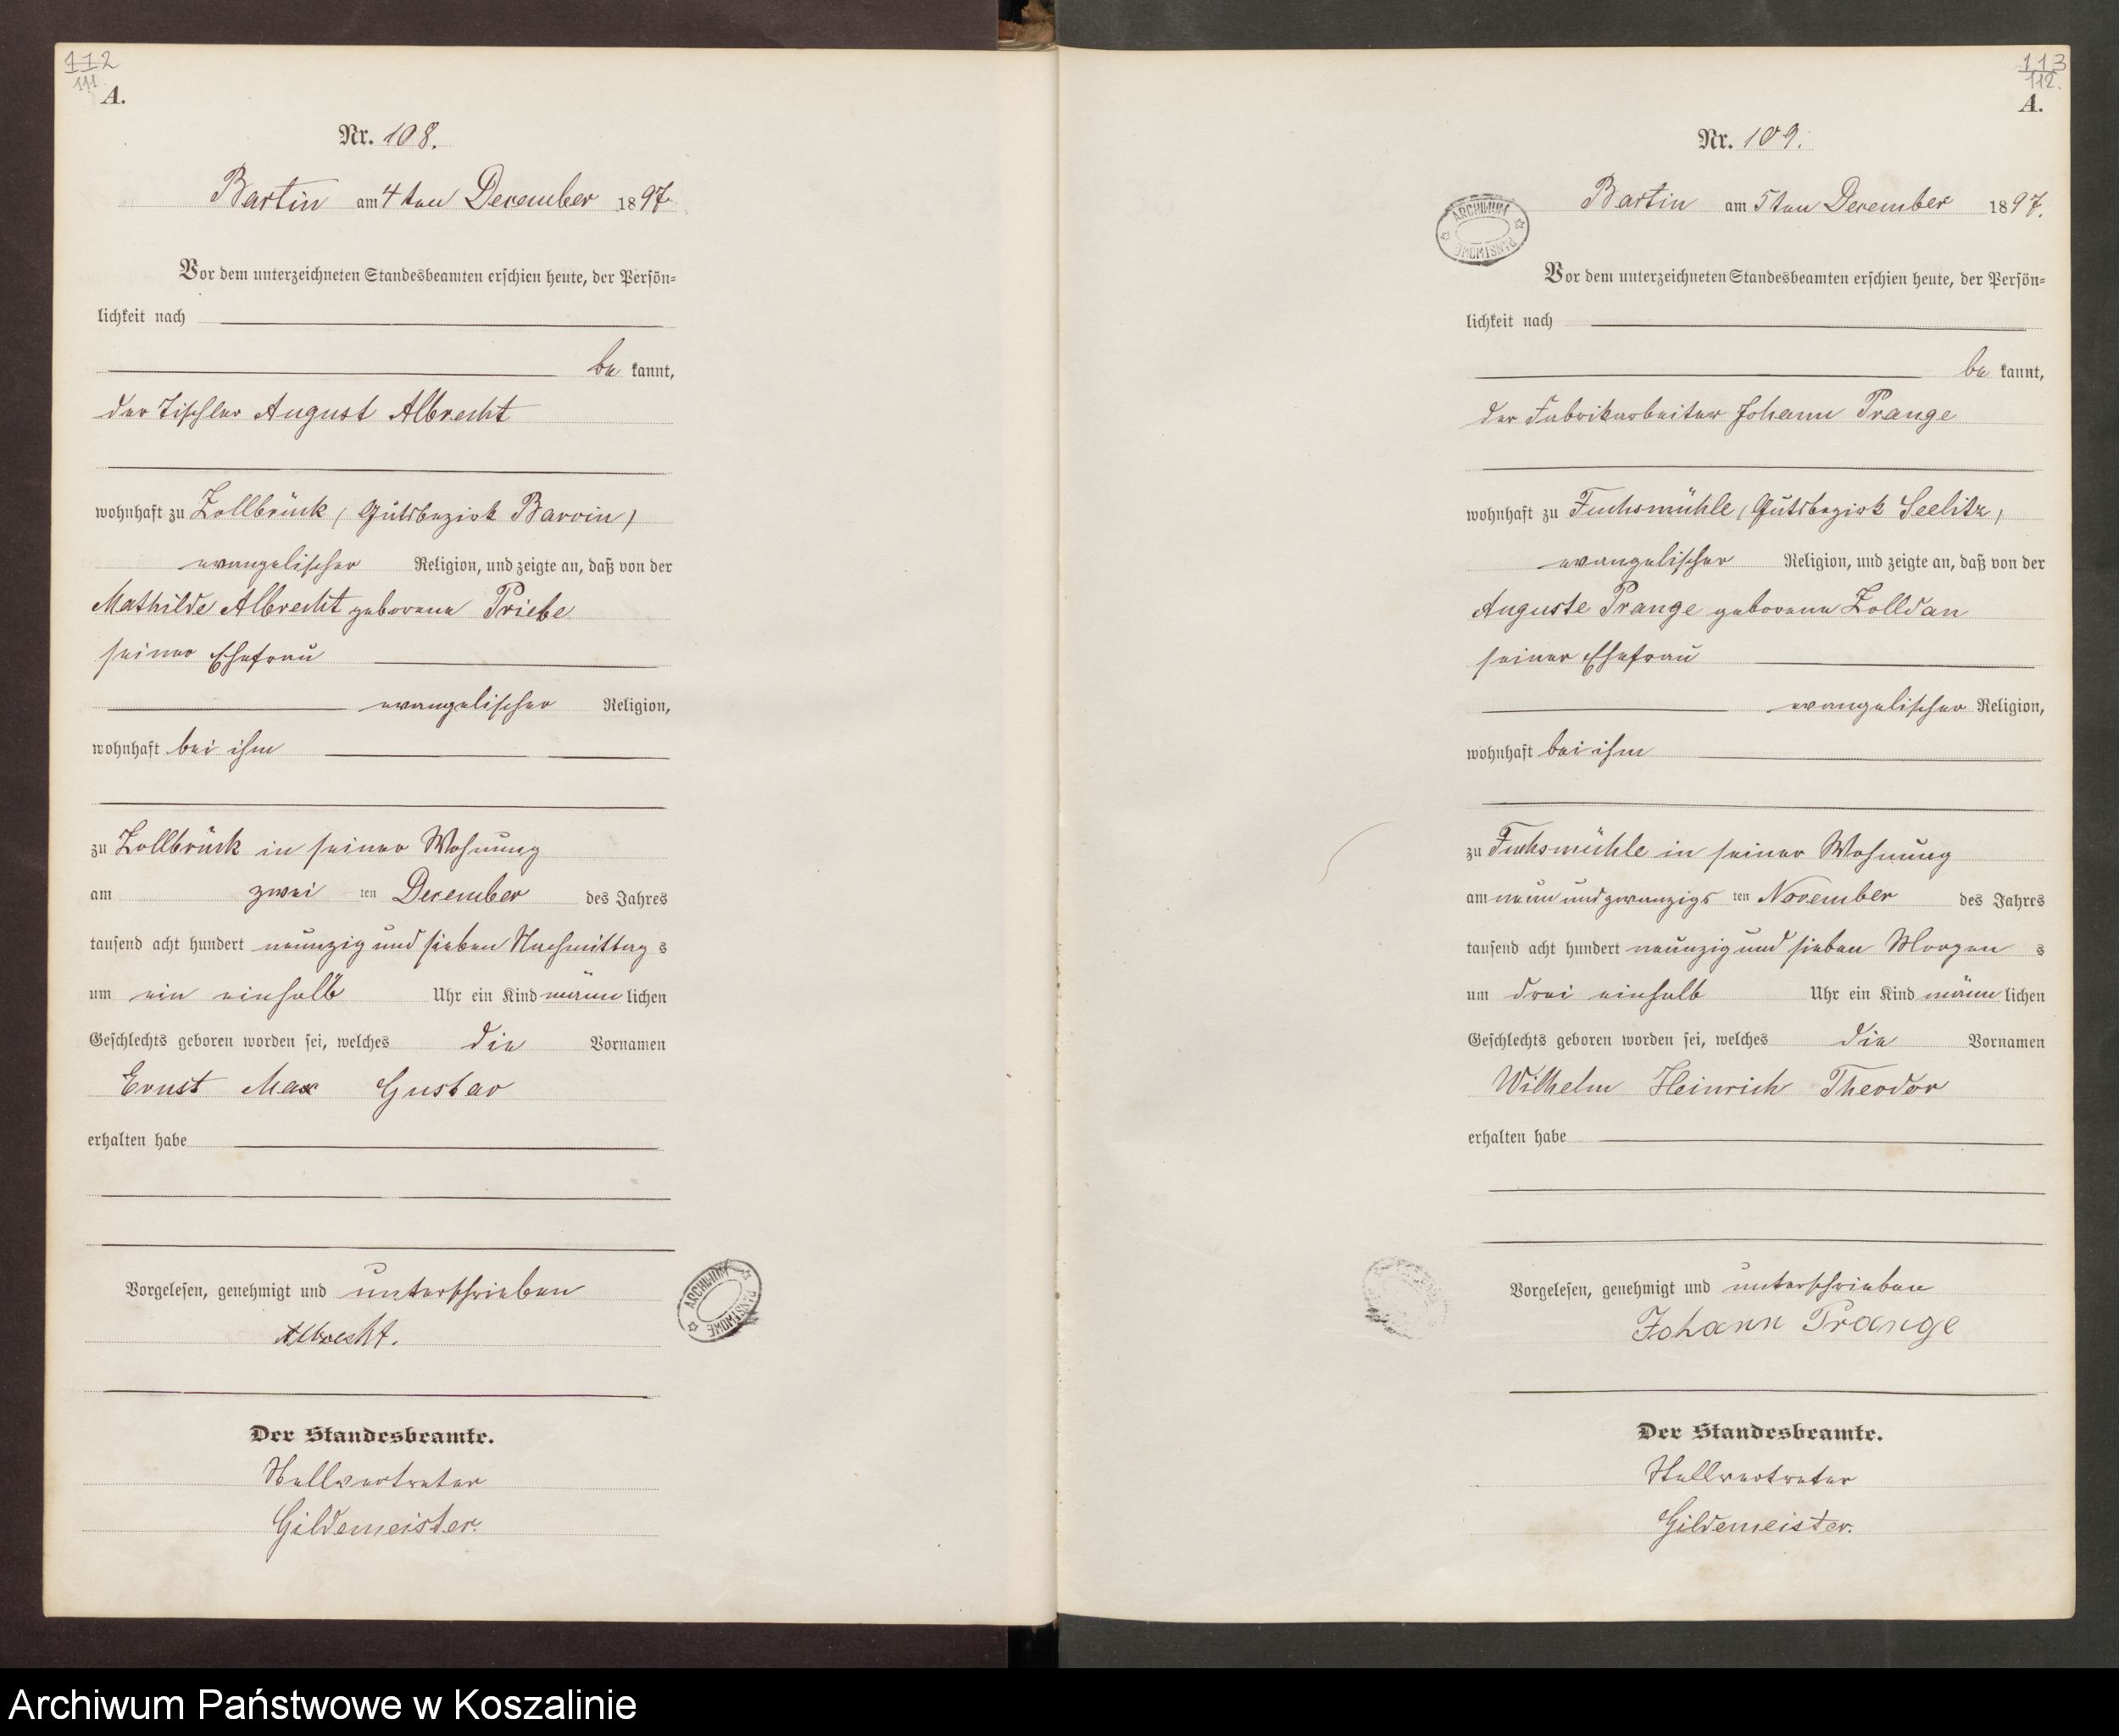 112
111
A.
Nr. 108.
Bartin am 4ten December 1897.
Vor dem unterzeichneten Standesbeamten erschien heute, der Persön-
lichkeit nach
be kannt,
der Tischler August Albrecht
wohnhaft zu Zollbrück (Gutsbezirk Barvin)
evangelischer Religion, und zeigte an, daß von der
Mathilde Albrecht geborene Priebe
seiner Ehefrau
evangelischer Religion,
wohnhaft bei ihm
zu Zollbrück in seiner Wohnung
am zwei ten December des Jahres
tausend acht hundert neunzig und sieben Nachmittag s
um ein einhalb Uhr ein Kind männ lichen
Geschlechts geboren worden sei, welches die Vornamen
Ernst Max Gustav
erhalten habe
Vorgelesen, genehmigt und unterschrieben
Albrecht.
ARCHIWUM PAŃSTWOWE
Der Standesbeamte.
Stellvertreter
Gildemeister.
113
112.
A.
Nr. 109.
Bartin am 5ten December 1897.
ARCHIWUM PAŃSTWOWE
Vor dem unterzeichneten Standesbeamten erschien heute, der Persön-
lichkeit nach
be kannt,
der Fabrikarbeiter Johann Prange
wohnhaft zu Fuchsmühle (Gutsbezirk Seelitz)
evangelischer Religion, und zeigte an, daß von der
Auguste Prange geborene Zolldan
seiner Ehefrau
evangelischer Religion,
wohnhaft bei ihm
zu Fuchsmühle in seiner Wohnung
am neun und zwanzigs ten November des Jahres
tausend acht hundert neunzig und sieben Morgen s
um drei einhalb Uhr ein Kind männ lichen
Geschlechts geboren worden sei, welches die Vornamen
Wilhelm Heinrich Theodor
erhalten habe
Vorgelesen, genehmigt und unterschrieben
Johann Prange
Der Standesbeamte.
Stellvertreter
Gildemeister.
Archiwum Państwowe w Koszalinie